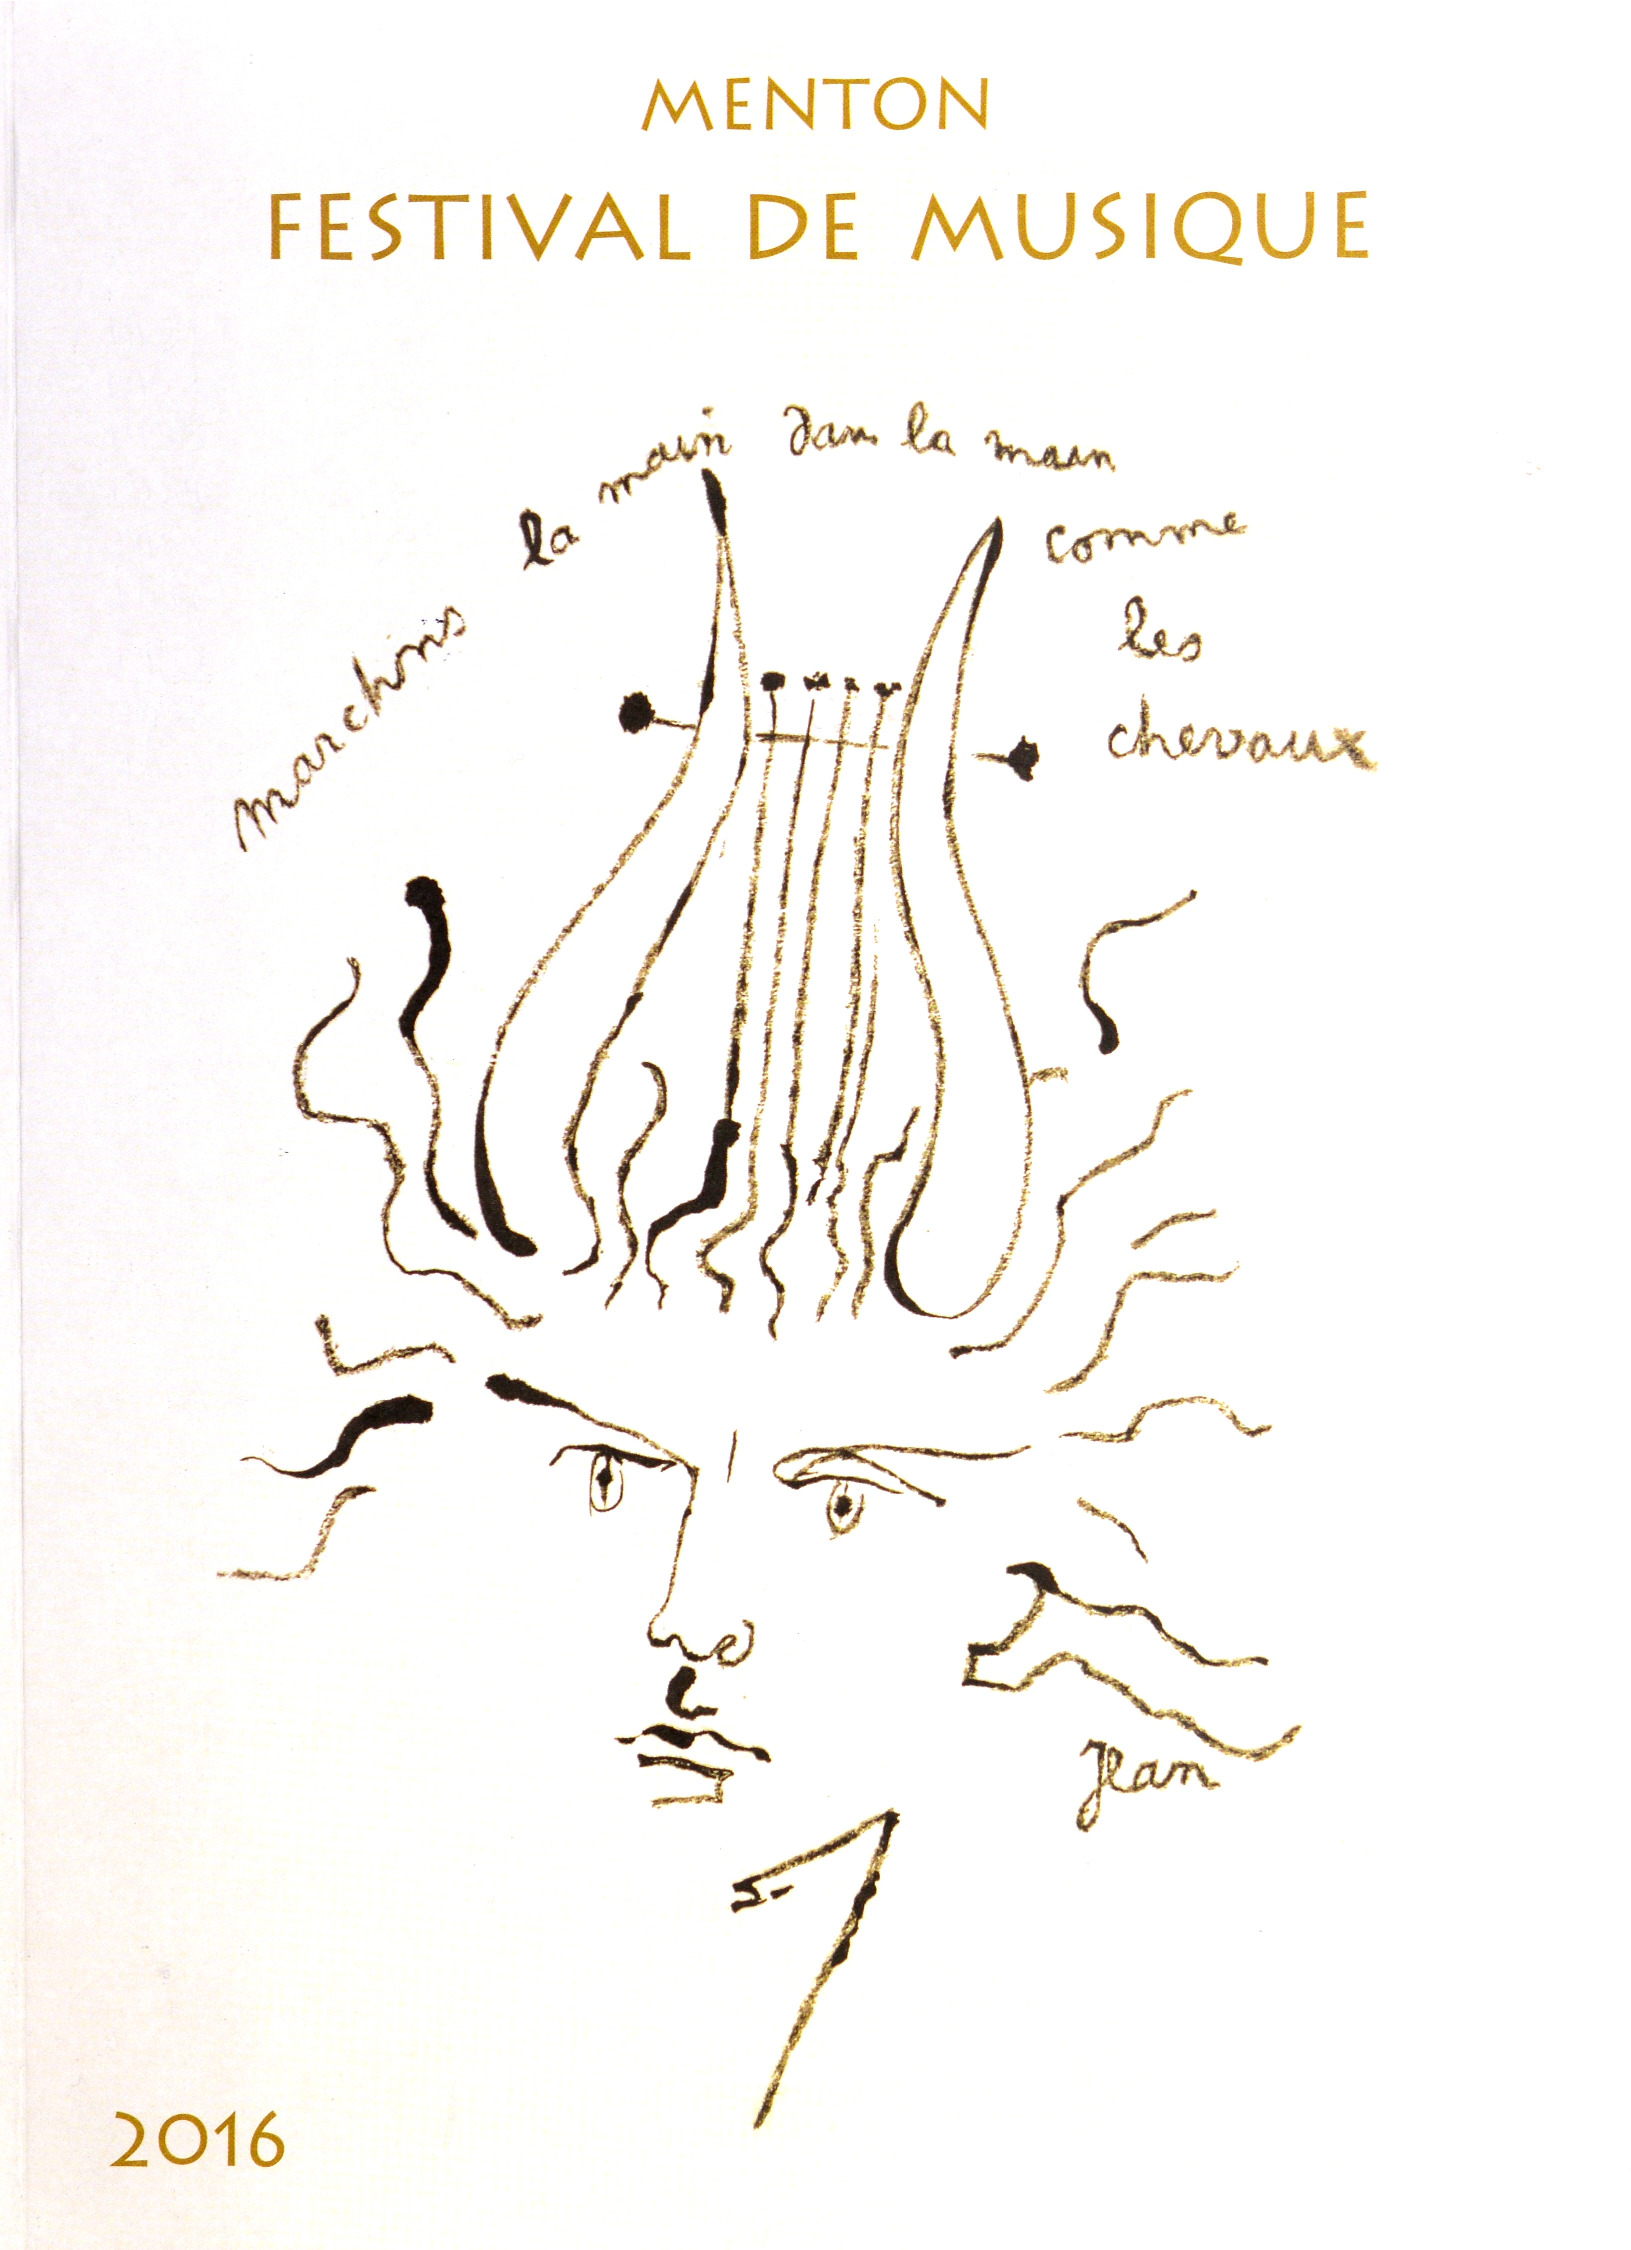 MENTON
FESTIVAL DE MUSIQUE
marchons la main dans la main comme les chevaux
Jean
2016